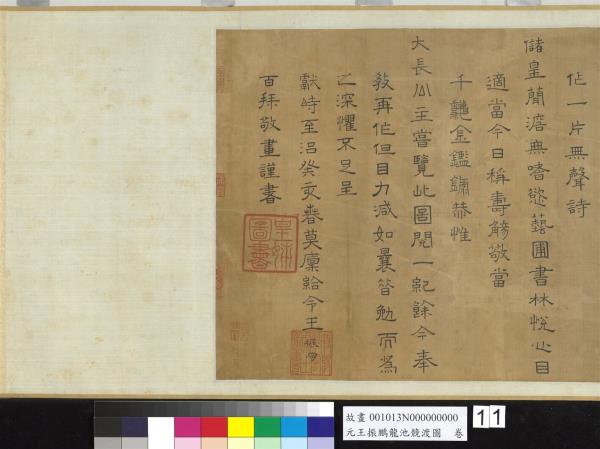 作一片無聲詩
儲皇簡澹無嗜慾藝圃書林悅心目
適當今日稱壽觴敬當
千龝金鑑錄恭惟
大長公主嘗覽此圖閱一紀餘今奉
教再作但目力減如曩昔勉而為
之深懼不足呈
獻時至治癸亥春莫廩給令王振鵬
百拜敬畫謹書
皇姊圖書
故畫 001013N000000000
元王振鵬龍池競渡圖 卷
11